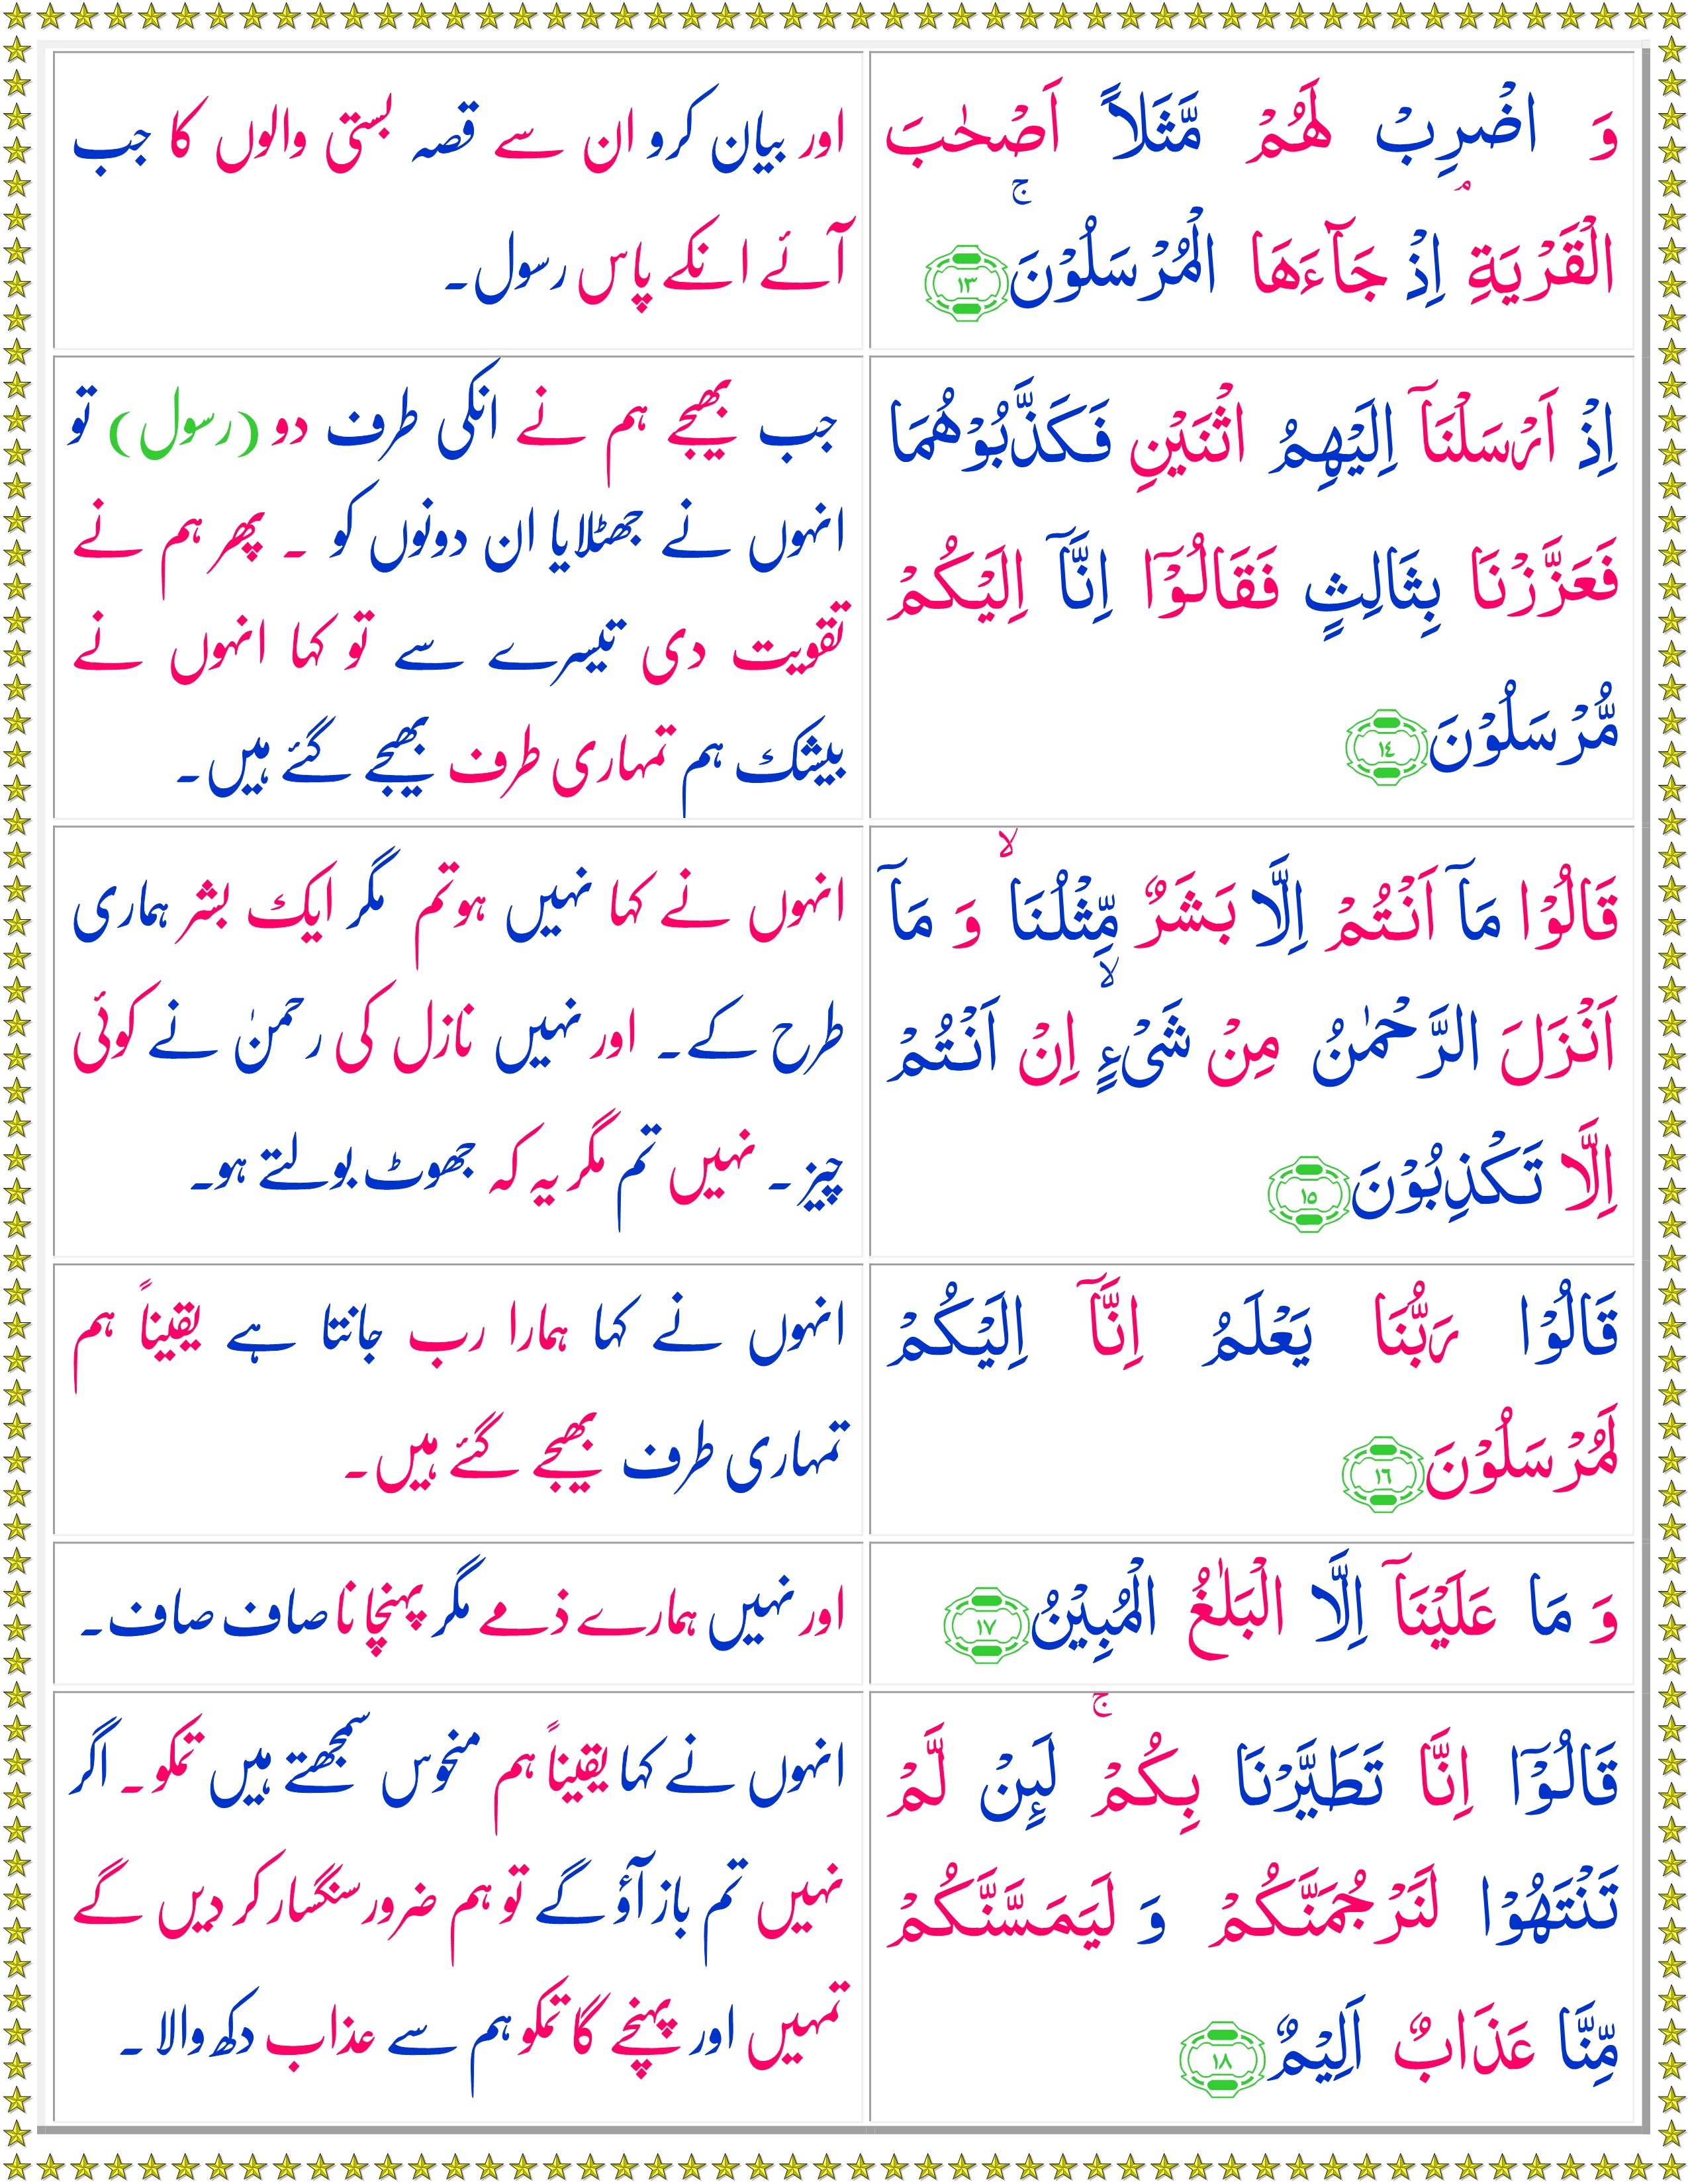 وَ اضْرِبْ لَهُمْ مَّثَلاً اَصْحٰبَ
الْقَرْيَةِ ۘ اِذْ جَآءَهَا الْمُرْسَلُوْنَ ۚ ١٣
اور بیان کرو ان سے قصہ بستی والوں کا جب
آئے انکے پاس رسول۔
اِذْ اَرْسَلْنَآ اِلَيْهِمُ اثْنَيْنِ فَكَذَّبُوْهُمَا
فَعَزَّزْنَا بِثَالِثٍ فَقَالُوْٓا اِنَّآ اِلَيْكُمْ
مُّرْسَلُوْنَ ١٤
جب بھیجے ہم نے انکی طرف دو (رسول) تو
انہوں نے جھٹلایا ان دونوں کو ۔ پھر ہم نے
تقویت دی تیسرے سے تو کہا انہوں نے
بیشک ہم تمہاری طرف بھیجے گئے ہیں۔
قَالُوْا مَآ اَنْتُمْ اِلَّا بَشَرٌ مِّثْلُنَا ۙ وَ مَآ
اَنْزَلَ الرَّحْمٰنُ مِنْ شَىْءٍ ۙ اِنْ اَنْتُمْ
اِلَّا تَكْذِبُوْنَ ١٥
انہوں نے کہا نہیں ہو تم مگر ایک بشر ہماری
طرح کے۔ اور نہیں نازل کی رحمنٰ نے کوئی
چیز ۔ نہیں تم مگر یہ کہ جھوٹ بولتے ہو۔
قَالُوْا رَبُّنَا يَعْلَمُ اِنَّآ اِلَيْكُمْ
لَمُرْسَلُوْنَ ١٦
انہوں نے کہا ہمارا رب جانتا ہے یقیناً ہم
تمہاری طرف بھیجے گئے ہیں۔
وَ مَا عَلَيْنَآ اِلَّا الْبَلٰغُ الْمُبِيْنُ ١٧
اور نہیں ہمارے ذمے مگر پہنچانا صاف صاف۔
قَالُوْٓا اِنَّا تَطَيَّرْنَا بِكُمْ ۚ لَىِٕنْ لَّمْ
تَنْتَهُوْا لَنَرْجُمَنَّكُمْ وَ لَيَمَسَّنَّكُمْ
مِّنَّا عَذَابٌ اَلِيْمٌ ١٨
انہوں نے کہا یقیناً ہم منحوس سمجھتے ہیں تمکو۔ اگر
نہیں تم باز آؤ گے تو ہم ضرور سنگسار کر دیں گے
تمہیں اور پہنچے گا تمکو ہم سے عذاب دکھ والا ۔